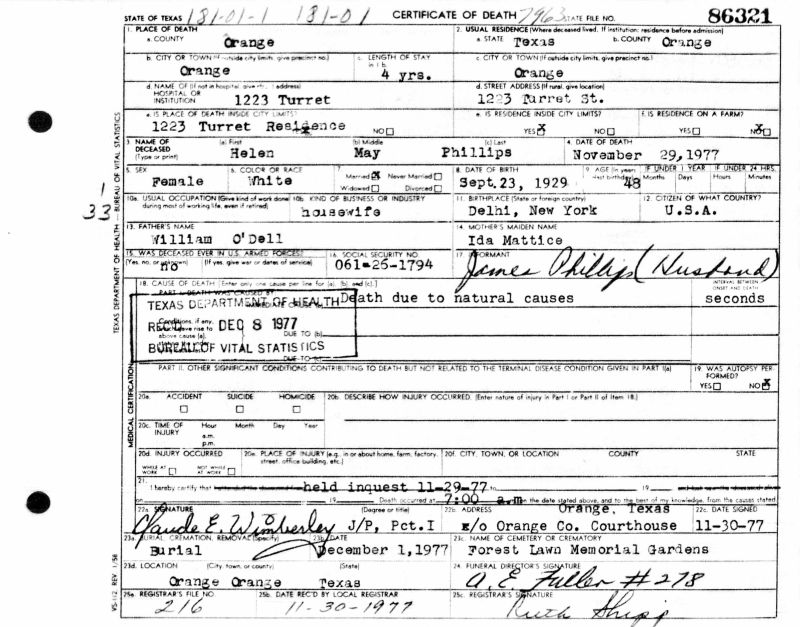 STATE OF TEXAS 181-01-1 181-01 CERTIFICATE OF DEATH 7963 STATE FILE NO. 86321
1. PLACE OF DEATH
a. COUNTY
Orange
2. USUAL RESIDENCE (Where deceased lived. If institution: residence before admission)
a. STATE Texas b. COUNTY Orange
b. CITY OR TOWN (If outside city limits, give precinct no.)
Orange
c. LENGTH OF STAY
in 1 b.
4 yrs.
c. CITY OR TOWN (If outside city limits, give precinct no.)
Orange
d. NAME OF (If not in hospital, give street address)
HOSPITAL OR
INSTITUTION 1223 Turret
d. STREET ADDRESS (If rural, give location)
1223 Turret St.
e. IS PLACE OF DEATH INSIDE CITY LIMITS?
1223 Turret Residence NO
e. IS RESIDENCE INSIDE CITY LIMITS?
YES X NO
f. IS RESIDENCE ON A FARM?
YES NO X
3. NAME OF
DECEASED
(Type or print)
(a) First
Helen
(b) Middle
May
(c) Last
Phillips
4. DATE OF DEATH
November 29, 1977
5. SEX
Female
6. COLOR OR RACE
White
7. Married X Never Married
Widowed Divorced
8. DATE OF BIRTH
Sept. 23, 1929
9. AGE (In years
last birthday)
48
IF UNDER 1 YEAR
Months Days
IF UNDER 24 HRS.
Hours Minutes
10a. USUAL OCCUPATION (Give kind of work done
during most of working life, even if retired)
10b. KIND OF BUSINESS OR INDUSTRY
housewife
11. BIRTHPLACE (State or foreign country)
Delhi, New York
12. CITIZEN OF WHAT COUNTRY?
U.S.A.
13. FATHER'S NAME
William O'Dell
14. MOTHER'S MAIDEN NAME
Ida Mattice
15. WAS DECEASED EVER IN U.S. ARMED FORCES?
(Yes, no, or unknown) (If yes, give war or dates of service)
no
16. SOCIAL SECURITY NO
061-25-1794
17. INFORMANT
James Phillips (Husband)
18. CAUSE OF DEATH [Enter only one cause per line for (a), (b), and (c).]
PART I. DEATH WAS CAUSED BY
INTERVAL BETWEEN
ONSET AND DEATH
Death due to natural causes
seconds
TEXAS DEPARTMENT OF HEALTH
REC'D DEC 8 1977
BUREAU OF VITAL STATISTICS
Conditions, if any,
which gave rise to
above cause (a),
DUE TO (b)
DUE TO (c)
PART II. OTHER SIGNIFICANT CONDITIONS CONTRIBUTING TO DEATH BUT NOT RELATED TO THE TERMINAL DISEASE CONDITION GIVEN IN PART I(a)
19. WAS AUTOPSY PER-
FORMED?
YES NO X
20a. ACCIDENT SUICIDE HOMICIDE
20b. DESCRIBE HOW INJURY OCCURRED. (Enter nature of injury in Part I or Part II of item 18.)
20c. TIME OF
INJURY
Hour Month Day Year
a.m.
p.m.
20d. INJURY OCCURRED
WHILE AT
WORK
NOT WHILE
AT WORK
20e. PLACE OF INJURY (e.g., in or about home, farm, factory,
street, office building, etc.)
20f. CITY, TOWN, OR LOCATION COUNTY STATE
21.
I hereby certify that held inquest 11-29-77 to 19
on 19 Death occurred at 7:00 a.m on the date stated above, and to the best of my knowledge, from the causes stated
22a. SIGNATURE (Degree or title)
Claude E. Wimberley J/P, Pct.I
22b. ADDRESS
Orange, Texas
c/o Orange Co. Courthouse
22c. DATE SIGNED
11-30-77
23a. BURIAL, CREMATION, REMOVAL (Specify)
Burial
23b. DATE
December 1,1977
23c. NAME OF CEMETERY OR CREMATORY
Forest Lawn Memorial Gardens
23d. LOCATION (City, town, or county) (State)
Orange Orange Texas
24. FUNERAL DIRECTOR'S SIGNATURE
A. E. Fuller #278
25a. REGISTRAR'S FILE NO
216
25b. DATE REC'D BY LOCAL REGISTRAR
11-30-1977
25c. REGISTRAR'S SIGNATURE
Ruth Shipp
TEXAS DEPARTMENT OF HEALTH — BUREAU OF VITAL STATISTICS
MEDICAL CERTIFICATION
VS-112 REV 1/58
1
33